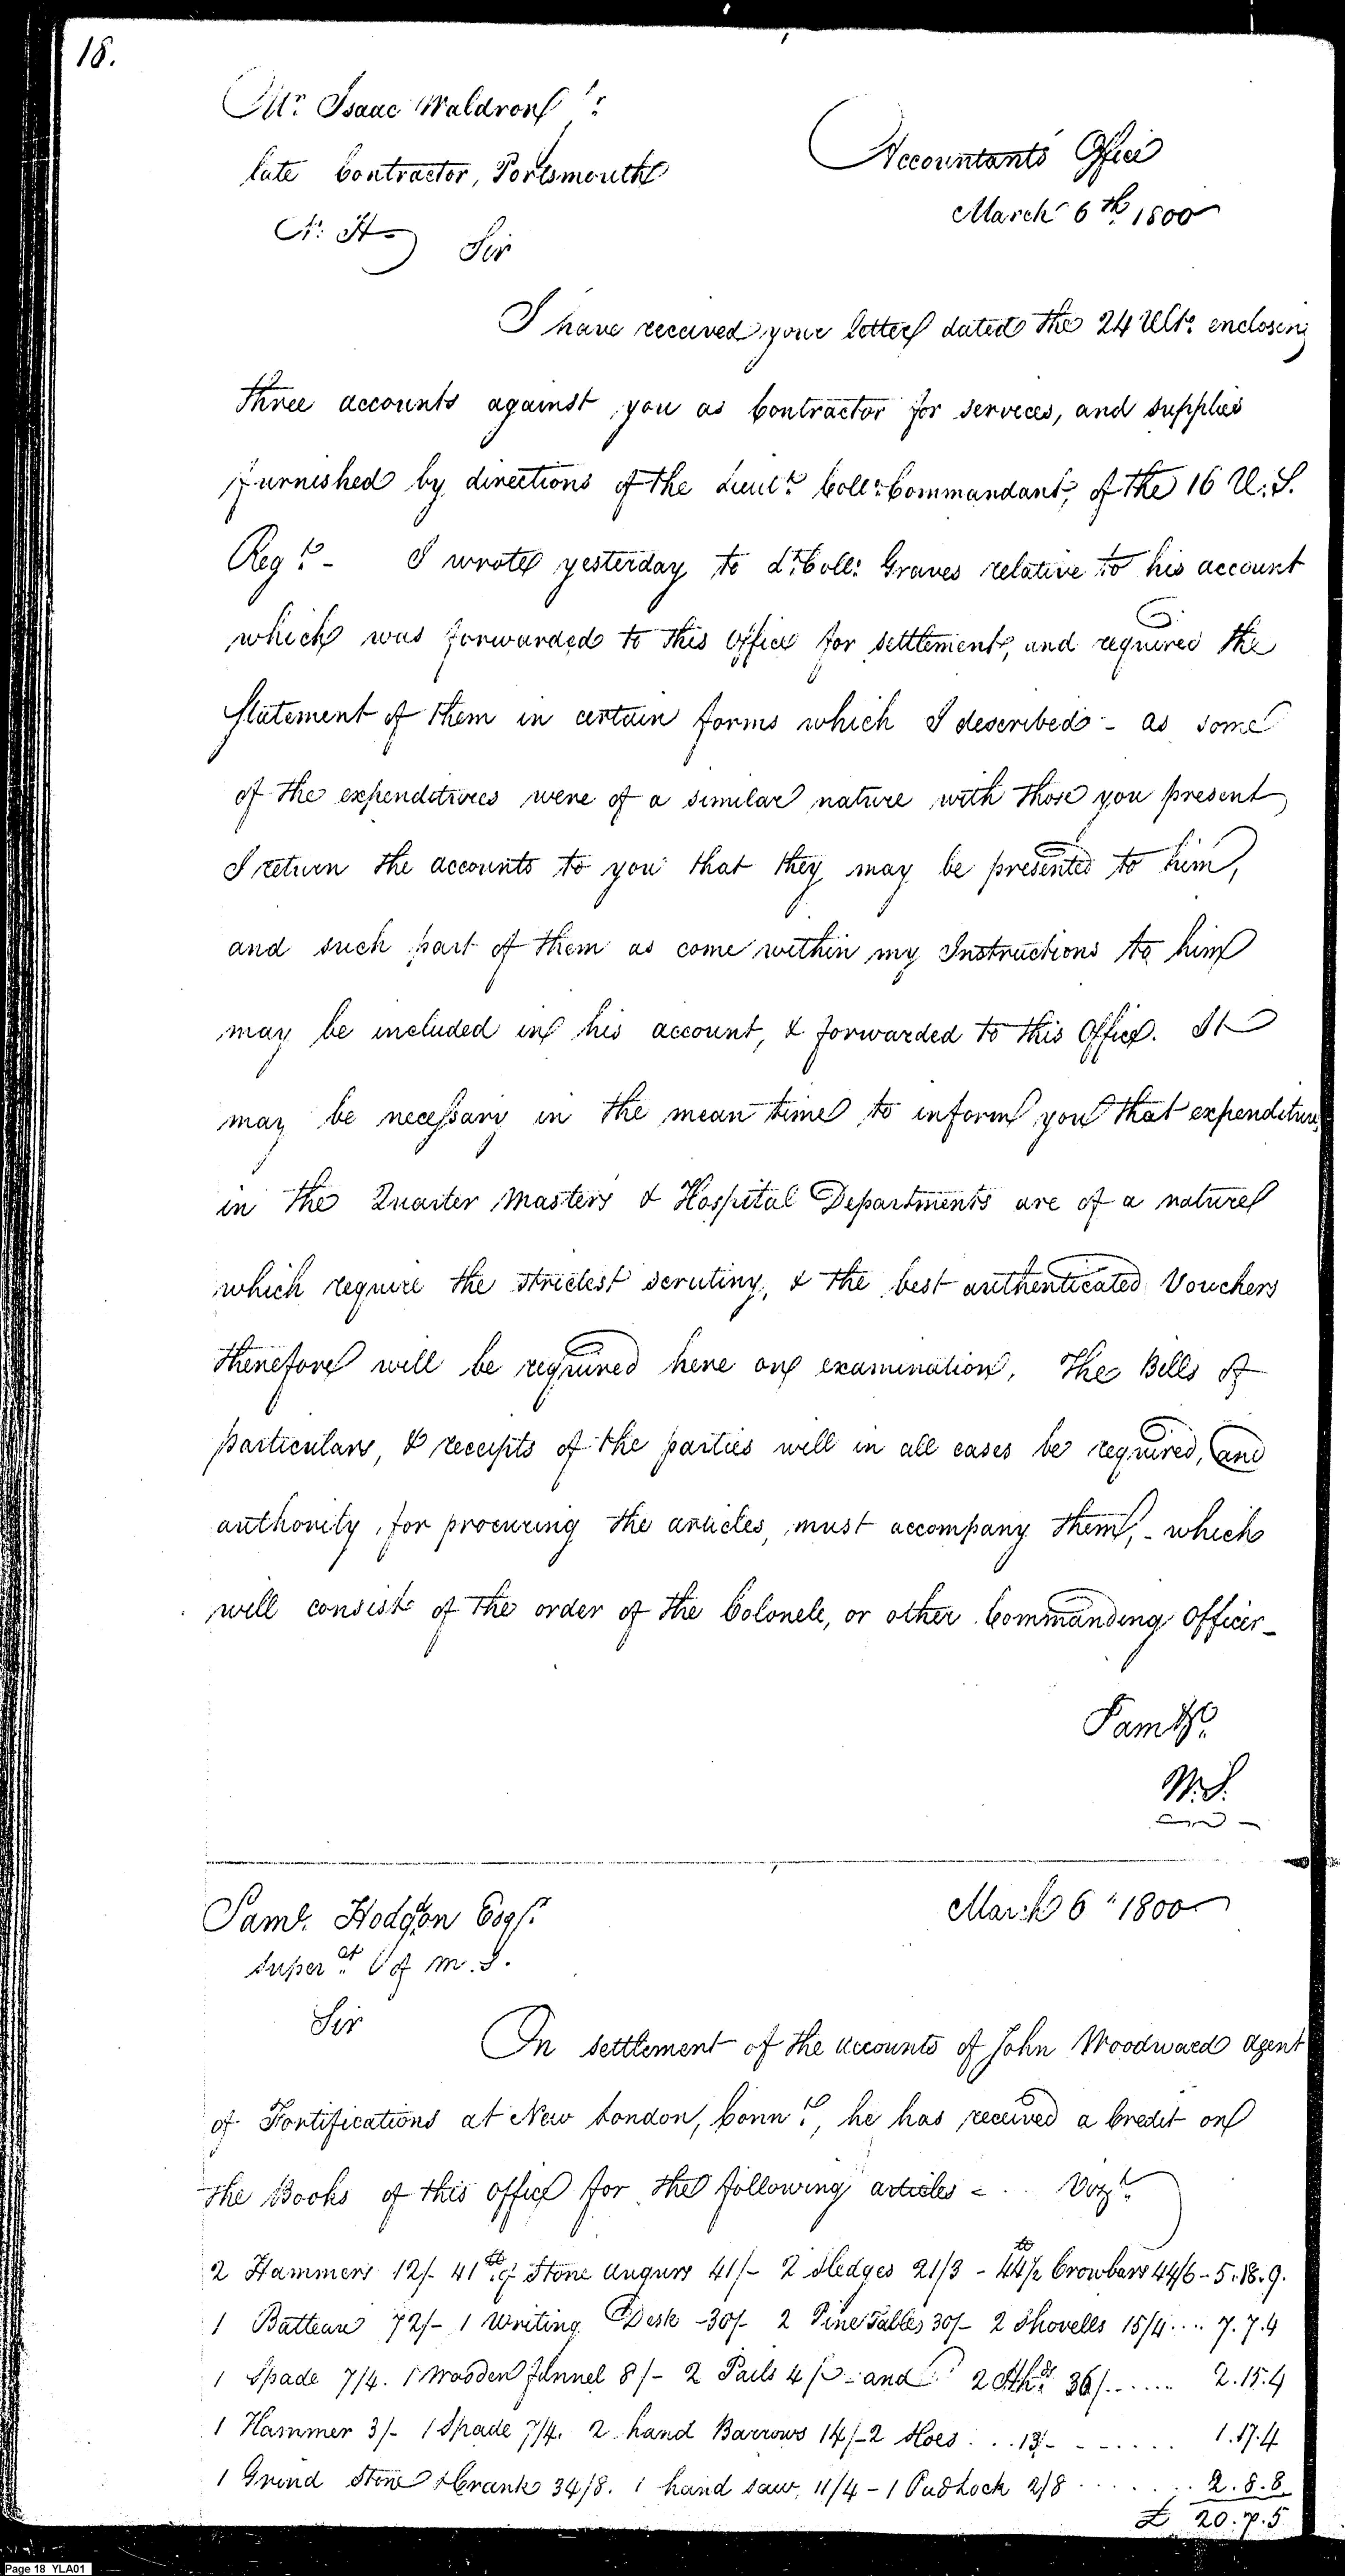 18.
Mr. Isaac Waldron Jr.
late Contractor, Portsmouth
N. H.
Accountants Office
March 6th 1800
Sir
I have received your letter dated the 24 Ulto. enclosing
three accounts against you as Contractor for services, and supplies
furnished by directions of the Lieut. Coll. Commandant, of the 16 U.S.
Regt. - I wrote yesterday to Lt. Coll. Graves relative to his account
which was forwarded to this office for settlement, and required the
Statement of them in certain forms which I described - as some
of the expenditures were of a similar nature with those you present
I return the accounts to you that they may be presented to him,
and such part of them as come within my Instructions to him
may be included in his account, & forwarded to this Office. It
may be necessary in the mean time to inform you that expenditures
in the Quarter Masters & Hospital Departments are of a nature
which require the strictest scrutiny, & the best authenticated Vouchers
therefore will be required here on examination. The Bills of
particulars, & receipts of the parties will in all cases be required, and
authority for procuring the articles, must accompany them, - which
will consist of the order of the Colonele, or other Commanding Officer -
I am &c.
W.S.
Saml. Hodgdon Esqr.
Supert. of M. S.
March 6th 1800
Sir
In settlement of the accounts of John Woodward Agent
of Fortifications at New London, Connt., he has received a Credit on
the Books of this office for the following articles - .. Vizt.
2 Hammers 12/- 41 lb of Stone Augurs 41/- 2 Sledges 21/3 - 44 1/2 lb Crowbars 44/6 - 5.18.9.
1 Batteau 72/- 1 Writing Desk - 30/- 2 Pine Tables 30/- 2 Shovells 15/4 .... 7.7.4
1 Spade 7/4. 1 Wooden funnel 8/- 2 Pails 4/- and 2 36/...... 2.15.4
1 Hammer 3/- 1 Spade 7/4. 2 hand Barrows 14/- 2 Hoes ... 13/- ...... 1.17.4
1 Grind Stone & Crank 34/8. 1 hand saw, 11/4 - 1 Padlock 2/8 ....... 2.8.8
£ 20.7.5
Page 18 YLA01